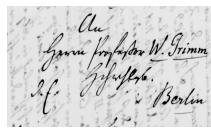 An
Herrn Professor W. Grimm
Berlin